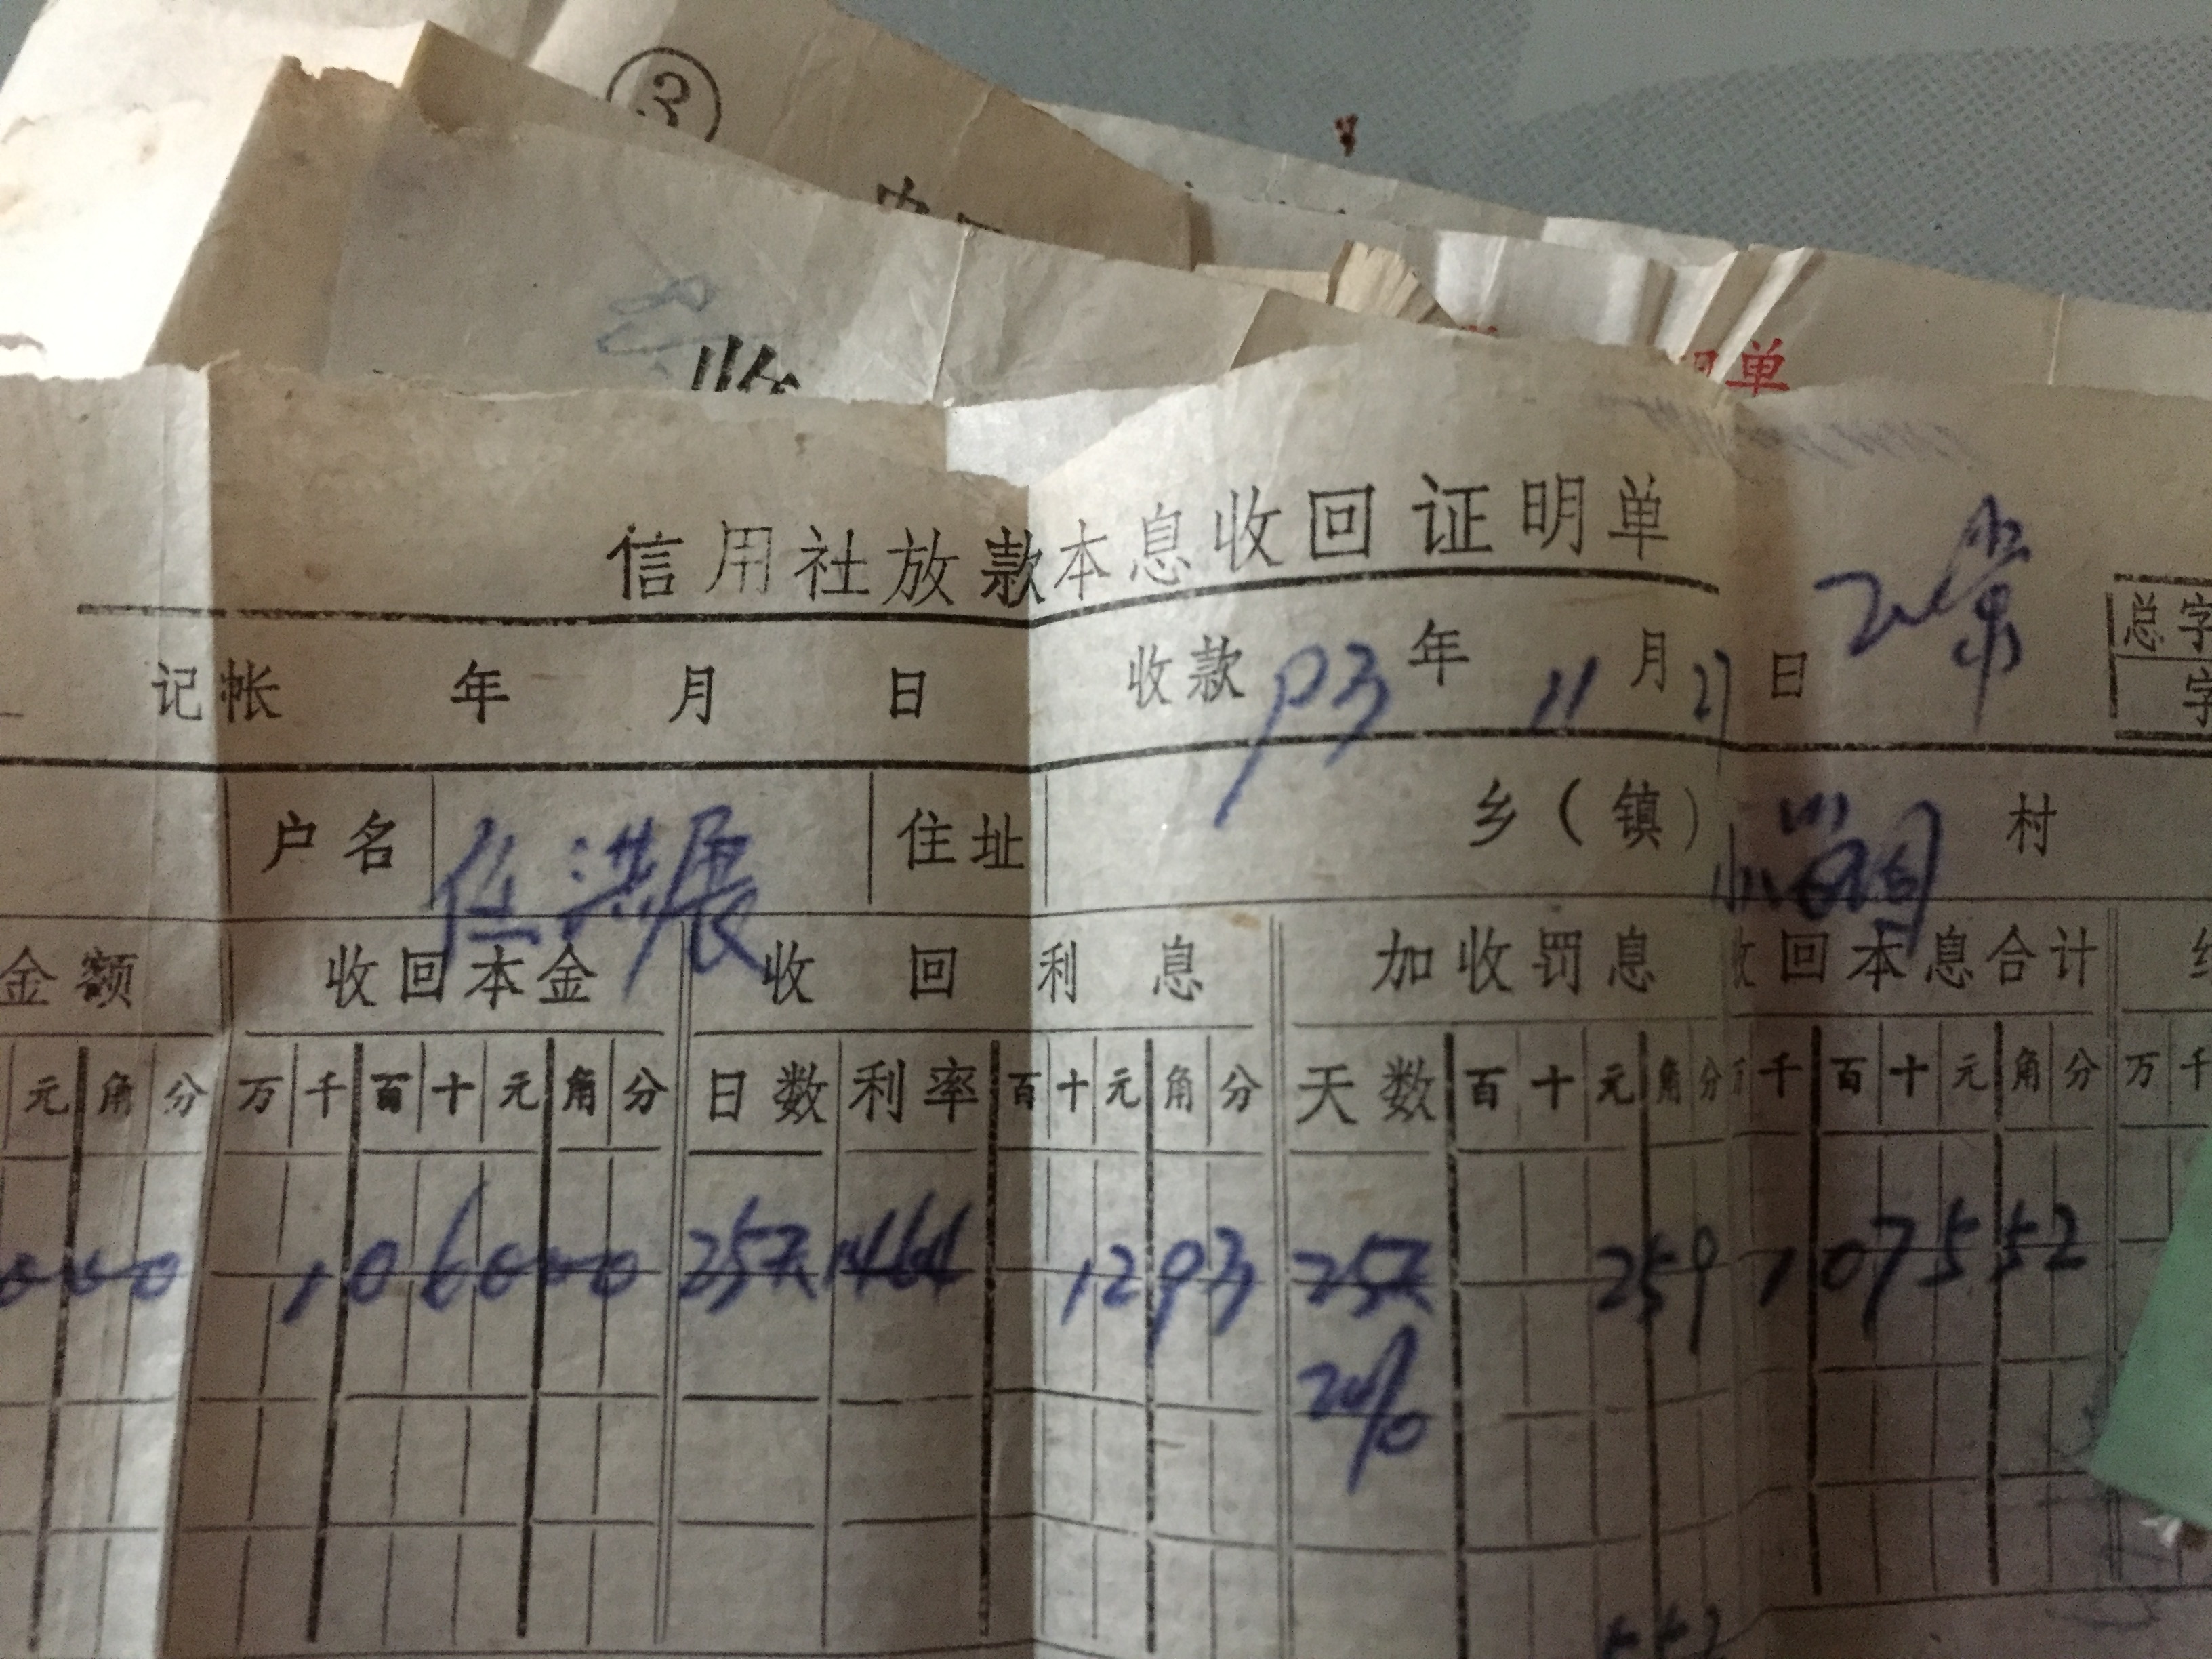 ③
单
信用社放款本息收回证明单
记帐 年 月 日 收款 93 年 11 月 27 日
总字
字
户名 任洪展 住址 乡(镇) 村
金额 收回本金 收回利息 加收罚息 收回本息合计
元 角 分 万 千 百 十 元 角 分 日数 利率 百 十 元 角 分 天数 百 十 元 角 分 万 千 百 十 元 角 分 万 千
000 106000 25天 1464 1293 25天 259 107552
20%